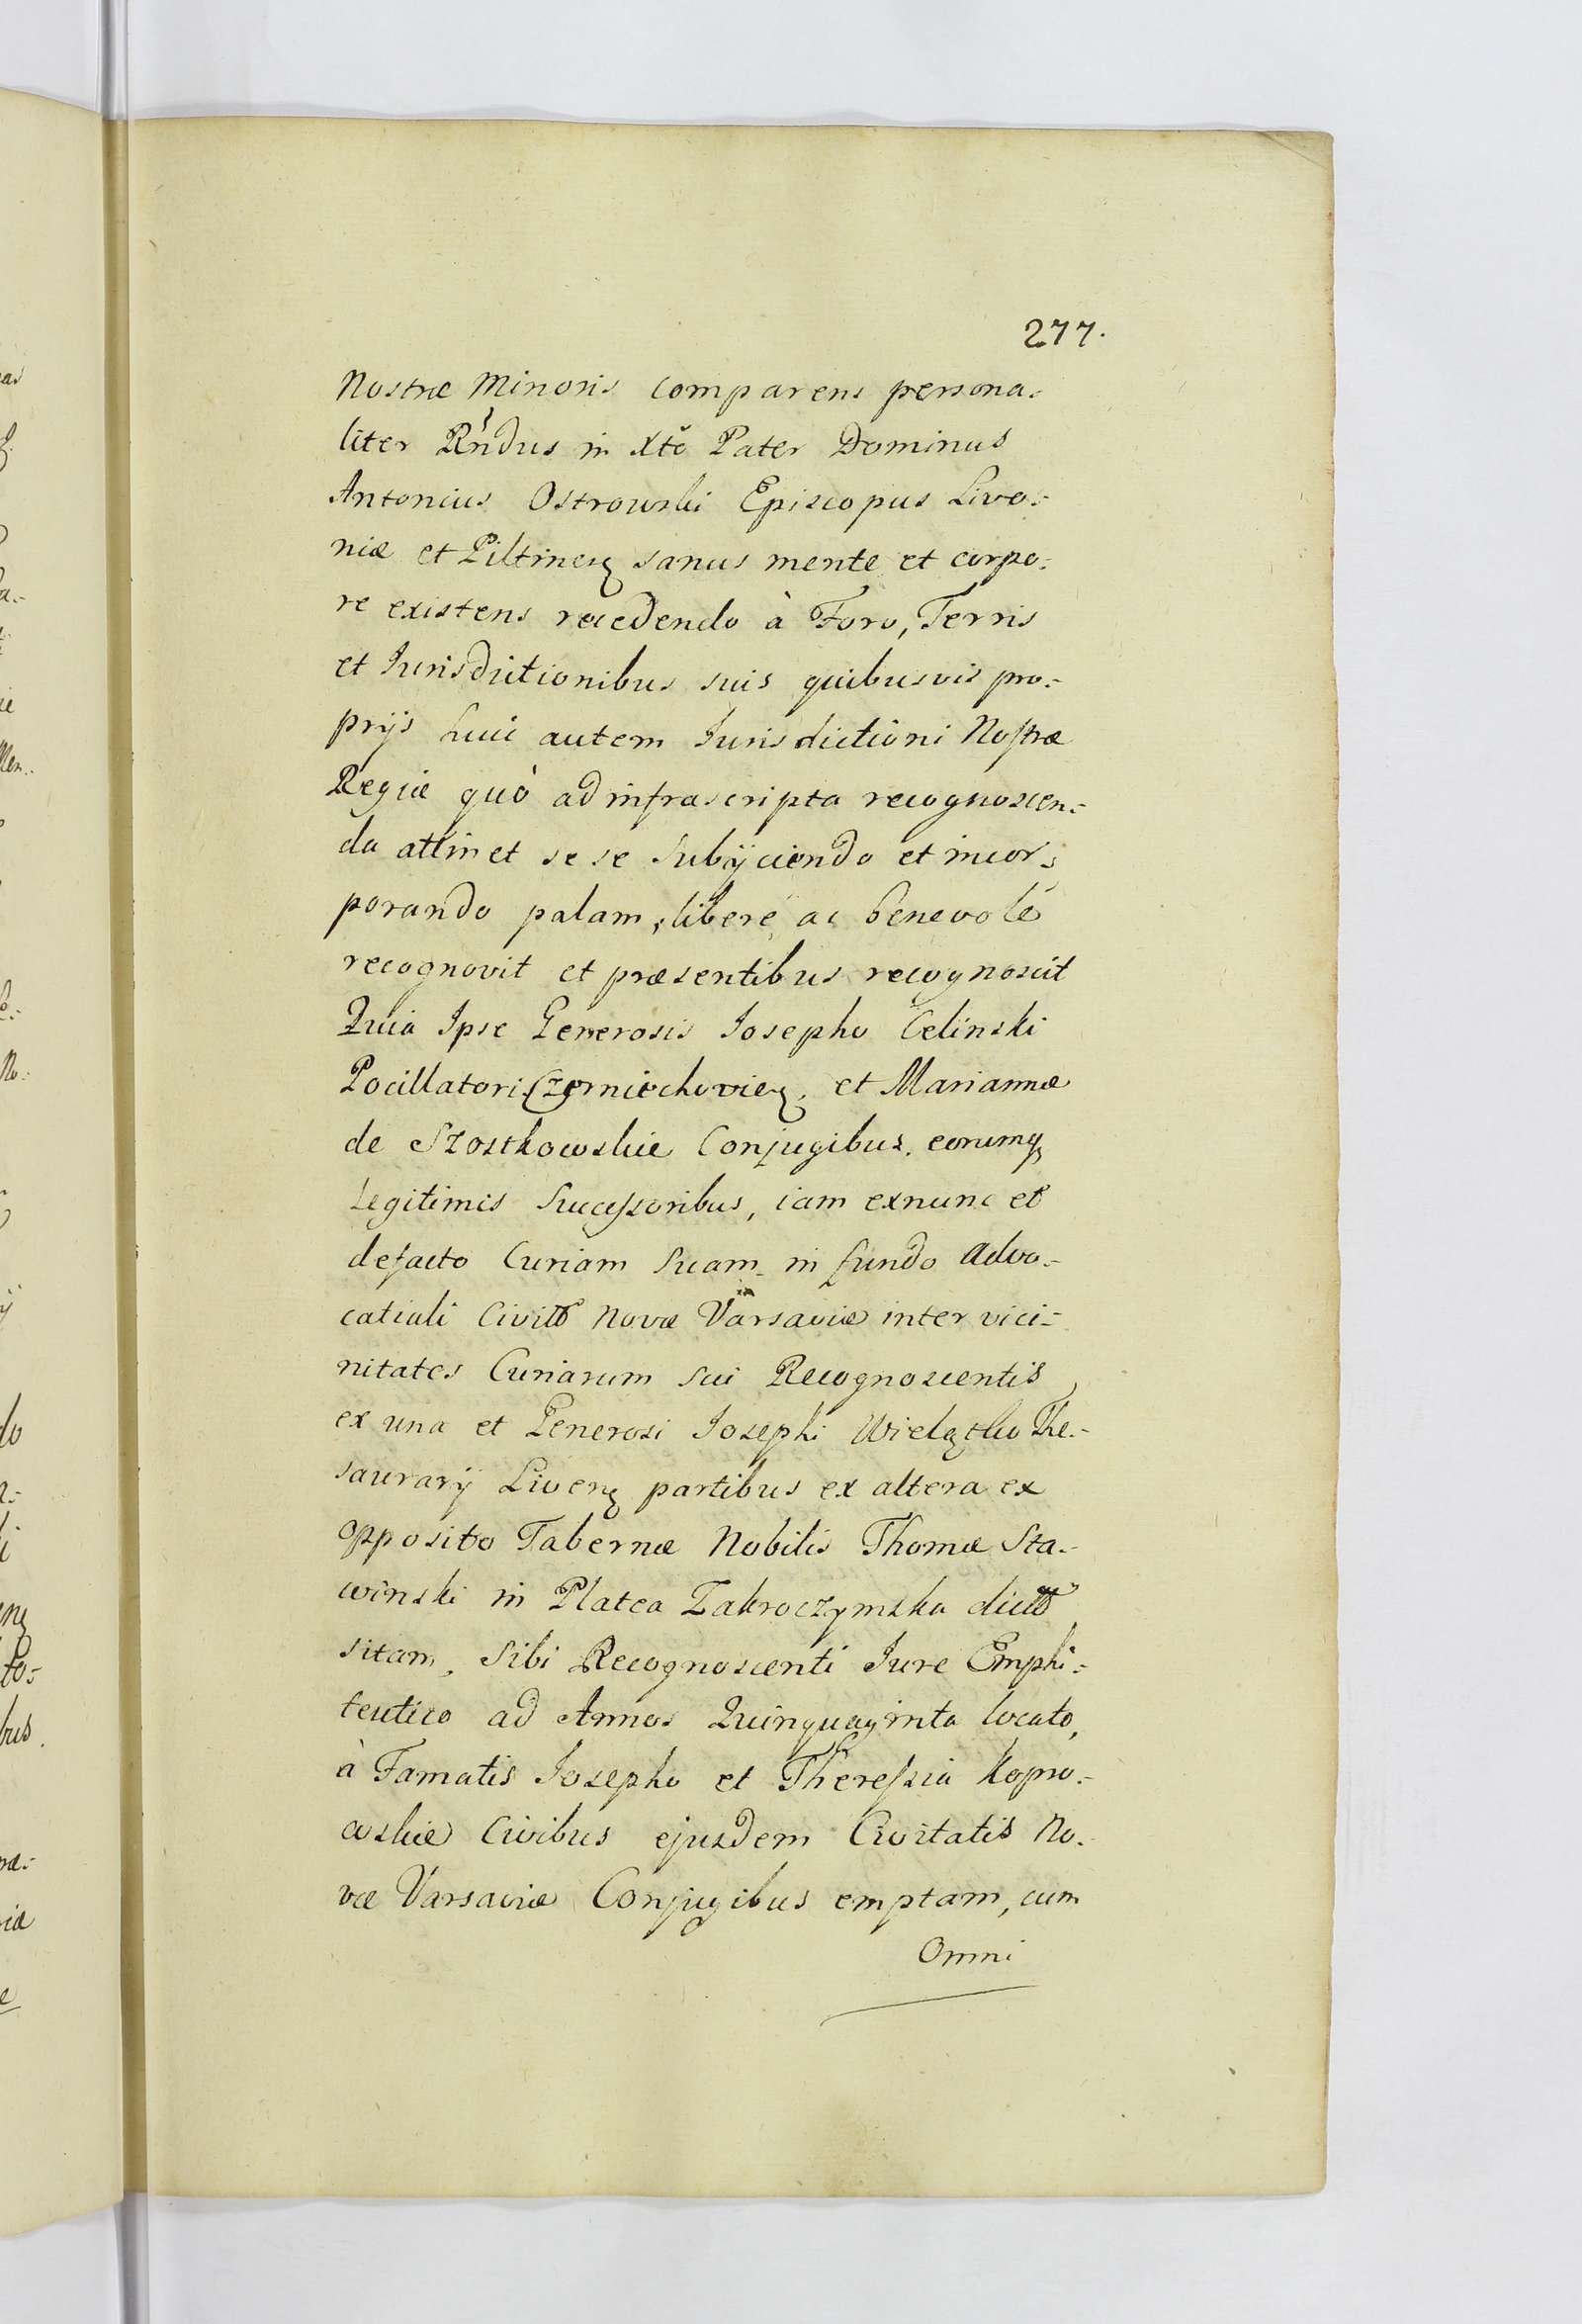 277.
Nostræ Minoris comparens persona=
liter Rńdus in Xtŏ Pater Dominus
Antonius Ostrowski Episcopus Livo=
niæ et Piltineꝫ sanus mente et corpo=
re existens recedendo à Foro, Terris
et Jurisdictionibus suis quibusvis pro=
prijs huic autem Jurisdictioni Nostræ
Regiæ quò ad infrascripta recognoscen=
da attinet se se subijciendo et incor=
porando palam, liberè ac benevolè
recognovit et præsentibus recognoscit
Quia Ipse Generosis Josepho Celinski
Pocillatori Czerniechovieꝫ. et Mariannæ
de Szostkowskie Conjugibus. eorumqꝫ
Legitimis Successoribus, iam exnunc et
defacto Curiam Suam in fundo Advo=
catiali Civittt Novæ Varsaviæ inter vici=
nitates Curiarum sui Recognoscentis
ex una et Generosi Josephi The=
saurarij Livenꝫ partibus ex altera ex
opposito Tabernæ Nobilis Thomæ Sta=
winski in Platea Zakroczymska dicttt
sitam, Sibi Recognoscenti Jure Emphi=
teutico ad Annos Quinquaginta locato,
à Famatis Josepho et Theressia Kopro=
wskie Civibus ejusdem Civitatis No=
væ Varsaviæ Conjugibus emptam, cum
Omni